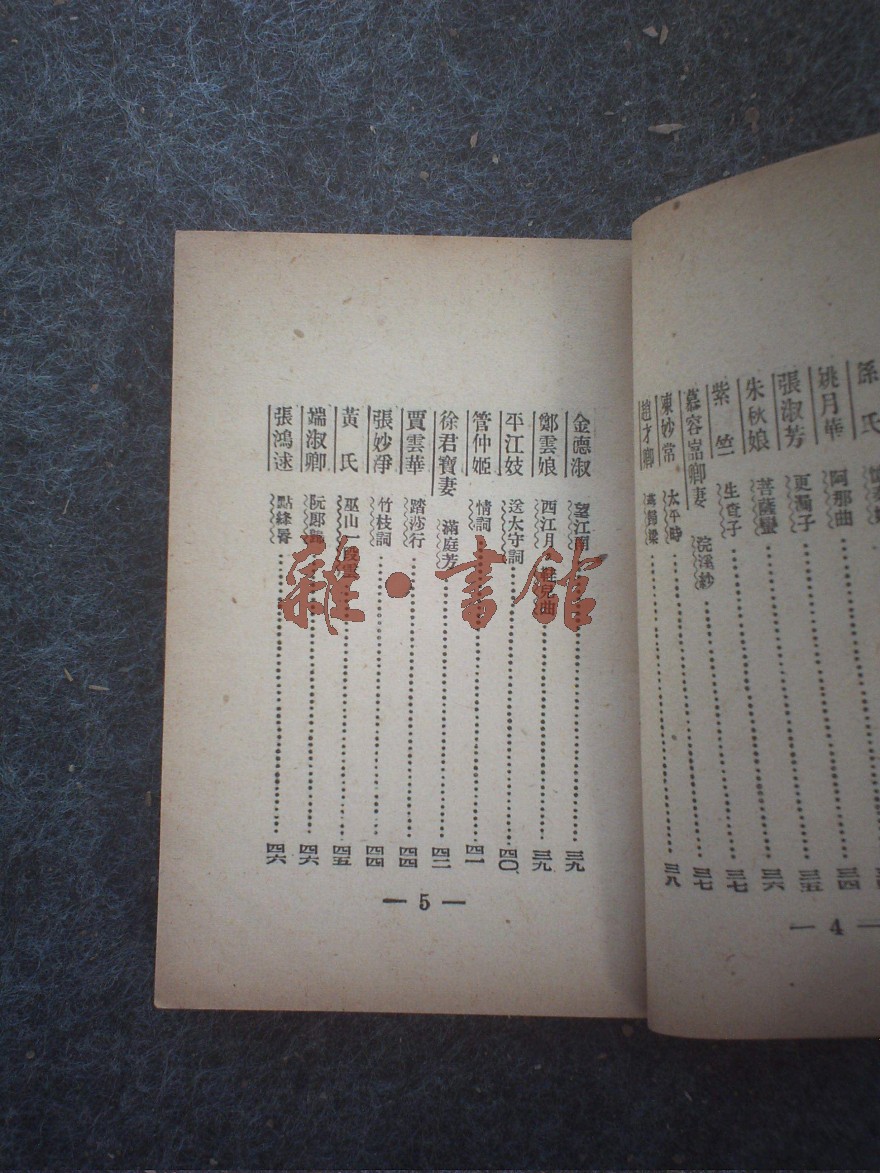 孫氏
姚月華 阿那曲 三四
張淑芳 更漏子 三五
朱秋娘 菩薩蠻 三六
紫竺 生查子 三七
慕容嵓卿妻 浣溪紗 三七
陳妙常 太平時 三八
趙才卿 燕歸梁
— 4 —
金德淑 望江南 三九
鄭雲娘 西江月 鞋兒曲 三九
平江妓 送太守詞 四〇
管仲姬 情詞 四一
徐君寶妻 滿庭芳 四二
賈雲華 踏莎行 四四
張妙淨 竹枝詞 四四
黃氏 巫山一段雲 四五
端淑卿 阮郎歸 四六
張鴻逑 點絳唇 四六
— 5 —
雜·書館